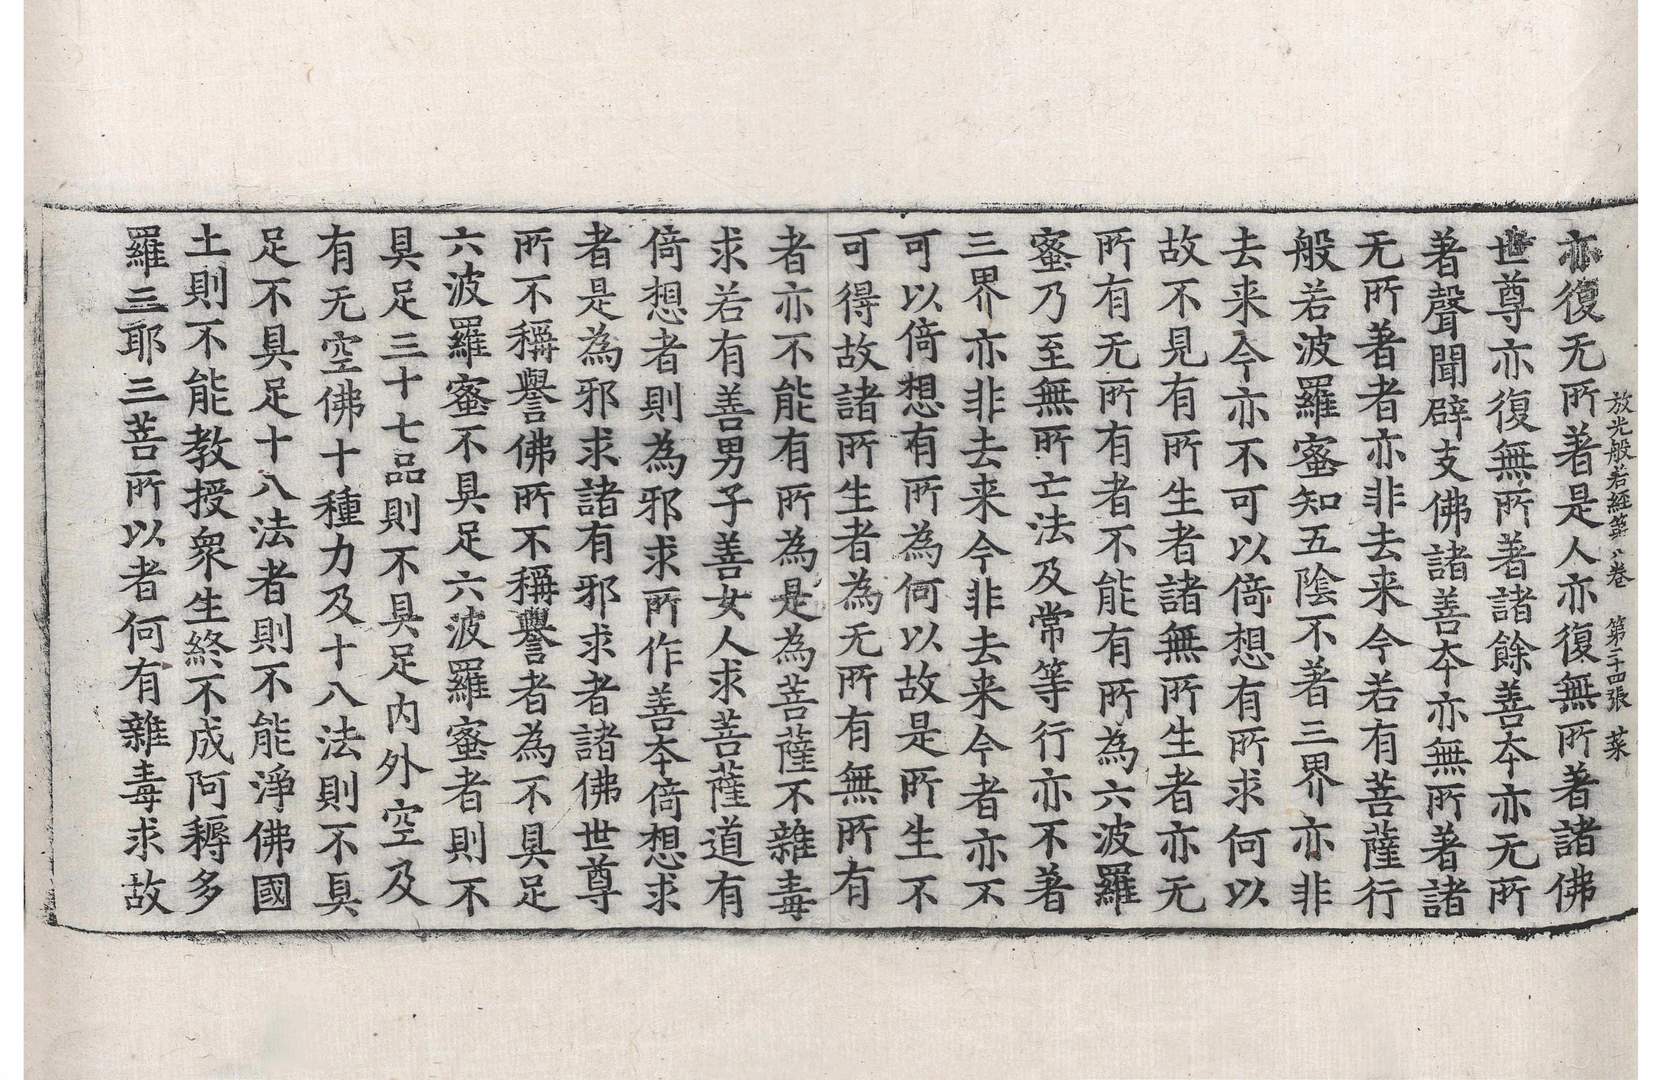 放光般若經第八卷　第二十四張　菜
亦復无所著是人亦復無所著諸佛
世尊亦復無所著諸餘善夲亦无所
著聲聞辟支佛諸善夲亦無所著諸
无所著者亦非去来今若有菩薩行
般若波羅蜜知五陰不著三界亦非
去来今亦不可以倚想有所求何以
故不見有所生者諸無所生者亦无
所有无所有者不能有所為六波羅
蜜乃至無所亡法及常等行亦不著
三界亦非去来今非去来今者亦不
可以倚想有所為何以故是所生不
可得故諸所生者為无所有無所有
者亦不能有所為是為菩薩不雜毒
求若有善男子善女人求菩薩道有
倚想者則為邪求所作善夲倚想求
者是為邪求諸有邪求者諸佛世尊
所不稱譽佛所不稱譽者為不具足
六波羅蜜不具足六波羅蜜者則不
具足三十七品則不具足内外空及
有无空佛十種力及十八法則不具
足不具足十八法者則不能淨佛國
土則不能教授衆生終不成阿耨多
羅三耶三菩所以者何有雜毒求故